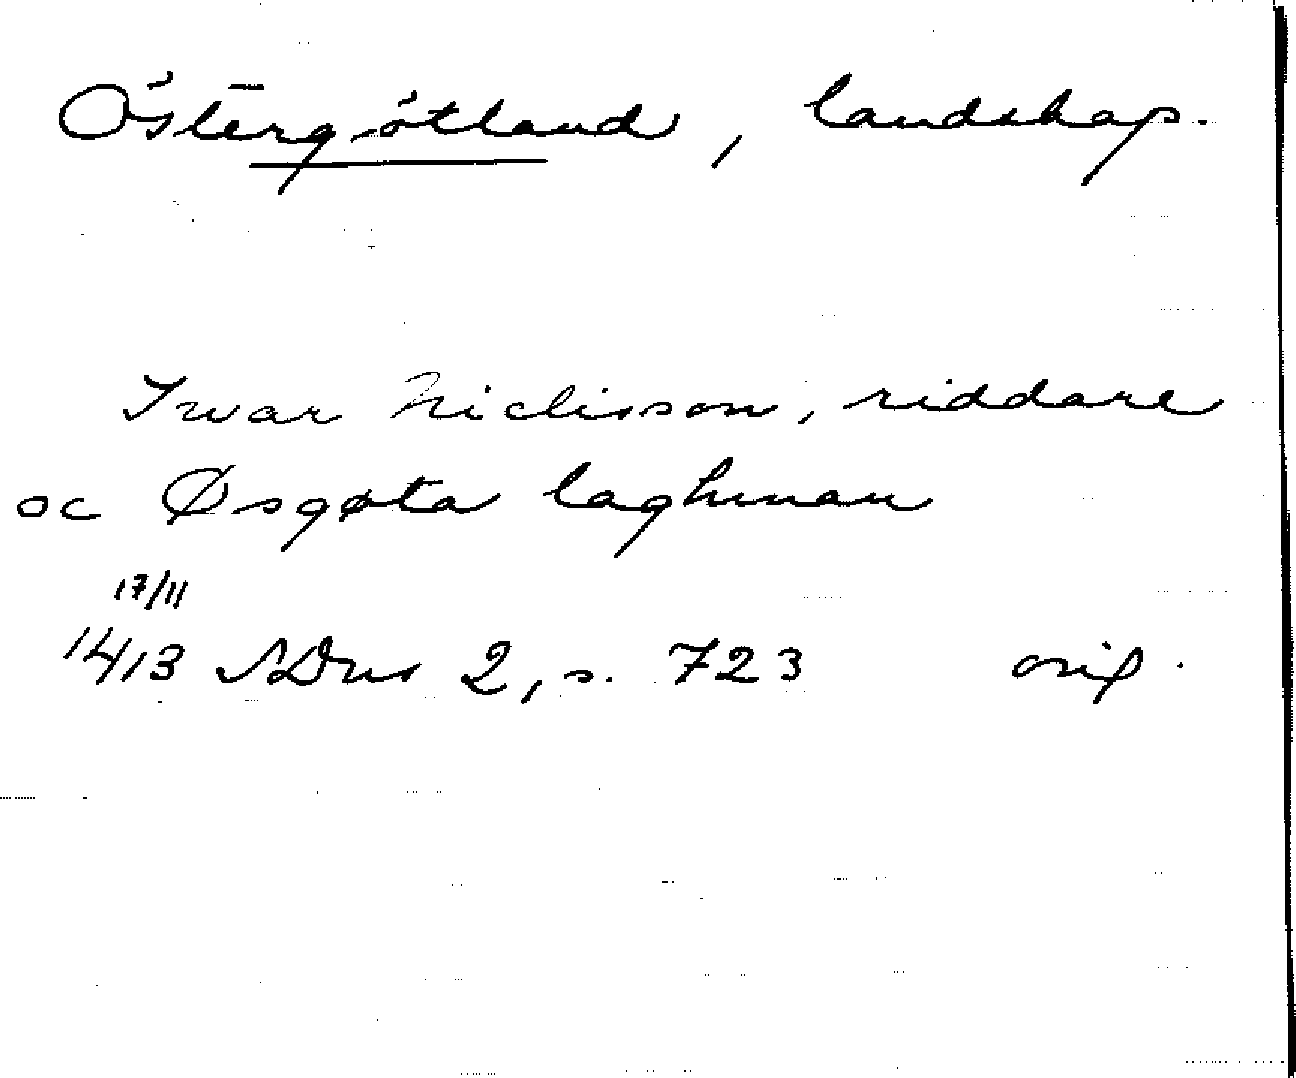 Östergötland, landskap.
Iwar Niclisson, riddare
oc Øsgøta laghman
17/11
1413 SDns 2, s. 723 orig.